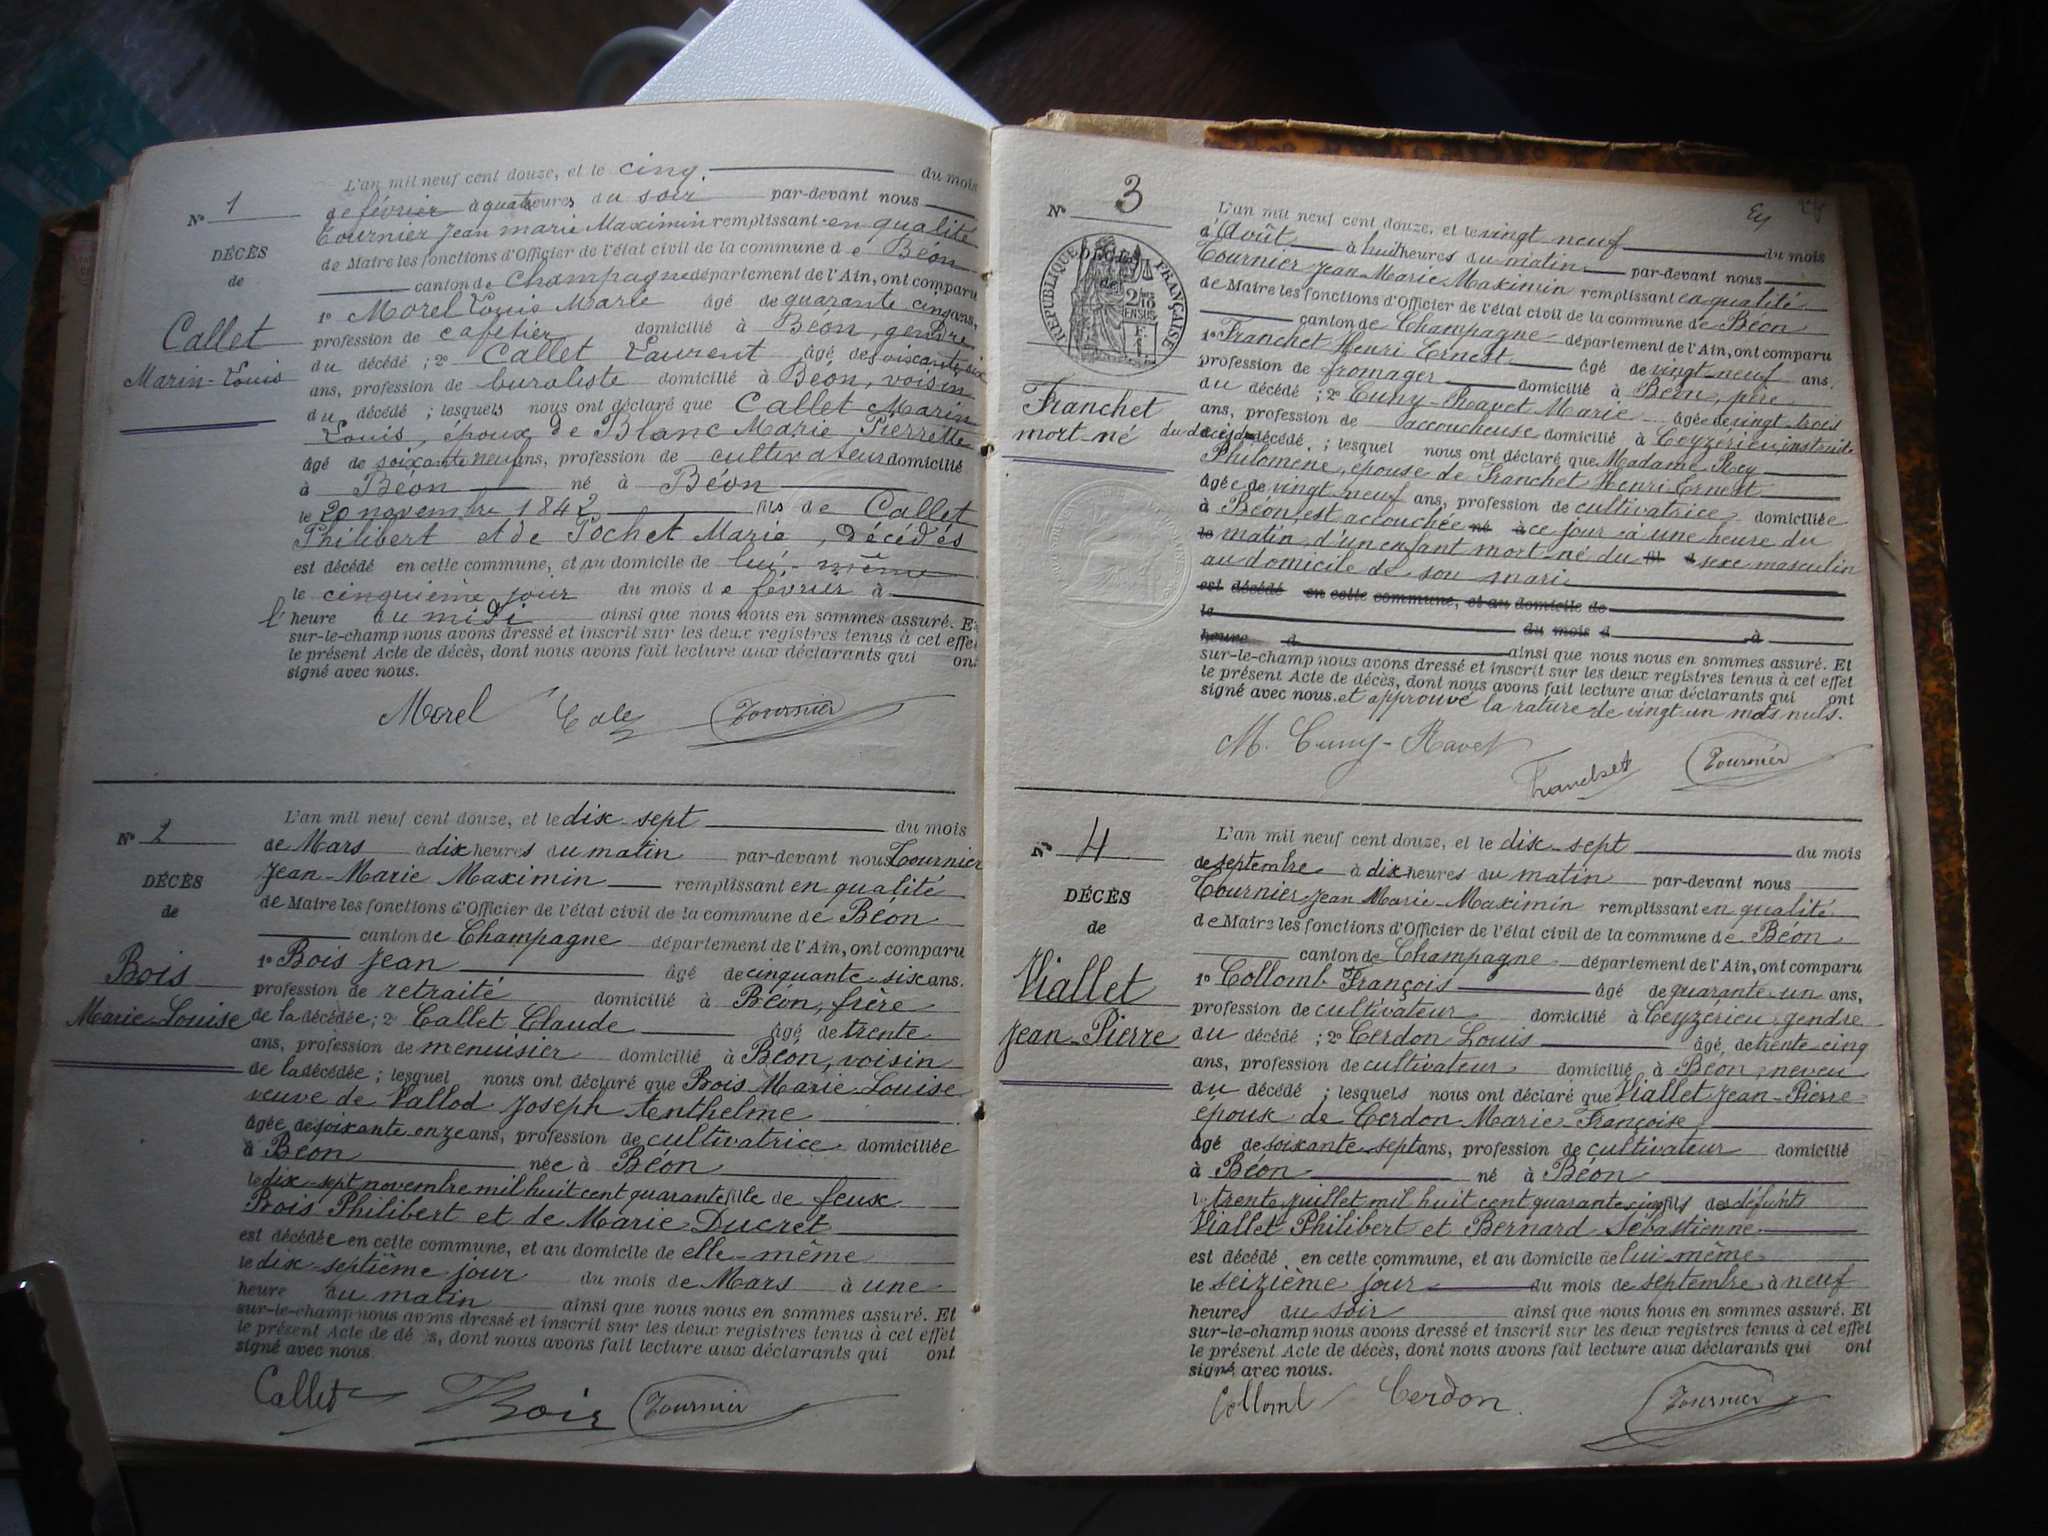 N° 1
DÉCÈS
de
Callet
Marin-Louis
L'an mil neuf cent douze, et le cinq du mois
de février à quatre heures du soir par-devant nous
Tournier Jean Marie Maximin remplissant en qualité
de Maire les fonctions d'Officier de l'état civil de la commune de Béon
canton de Champagne département de l'Ain, ont comparu
1° Morel Louis Marie âgé de quarante cinq ans,
profession de cafetier domicilié à Béon, gendre
du décédé ; 2° Callet Laurent âgé de soixante six
ans, profession de buraliste domicilié à Béon, voisin
du décédé ; lesquels nous ont déclaré que Callet Marin
Louis, époux de Blanc Marie Pierrette
âgé de soixante neuf ans, profession de cultivateur domicilié
à Béon né à Béon
le 20 novembre 1842 fils de Callet
Philibert et de Pochet Marie, décédés
est décédé en cette commune, et au domicile de lui-même
le cinquième jour du mois de février à
l'heure du midi ainsi que nous nous en sommes assuré. Et
sur-le-champ nous avons dressé et inscrit sur les deux registres tenus à cet effet
le présent Acte de décès, dont nous avons fait lecture aux déclarants qui ont
signé avec nous.
Morel Tournier
N° 2
DÉCÈS
de
Bois
Marie-Louise
L'an mil neuf cent douze, et le dix-sept du mois
de Mars à dix heures du matin par-devant nous Tournier
Jean-Marie Maximin remplissant en qualité
de Maire les fonctions d'Officier de l'état civil de la commune de Béon
canton de Champagne département de l'Ain, ont comparu
1° Bois Jean âgé de cinquante-six ans.
profession de retraité domicilié à Béon, frère
de la décédée ; 2° Callet Claude âgé de trente
ans, profession de menuisier domicilié à Béon, voisin
de la décédée ; lesquel nous ont déclaré que Bois Marie-Louise
veuve de Vallod Joseph Anthelme
âgée de soixante-onze ans, profession de cultivatrice domiciliée
à Béon née à Béon
le dix-sept novembre mil huit cent quarante fille de feux
Bois Philibert et de Marie Ducret
est décédée en cette commune, et au domicile de elle-même
le dix-septième jour du mois de Mars à une
heure du matin ainsi que nous nous en sommes assuré. Et
sur-le-champ nous avons dressé et inscrit sur les deux registres tenus à cet effet
le présent Acte de décès, dont nous avons fait lecture aux déclarants qui ont
signé avec nous.
Callet Bois Tournier
N° 3
RÉPUBLIQUE FRANÇAISE
DÉCÈS
de
2/10 EN SUS
Franchet
mort-né
L'an mil neuf cent douze, et le vingt neuf du mois
d'Août à huit heures du matin par-devant nous
Tournier Jean-Marie Maximin remplissant en qualité
de Maire les fonctions d'Officier de l'état civil de la commune de Béon
canton de Champagne département de l'Ain, ont comparu
1° Franchet Henri Ernest âgé de vingt-neuf ans,
profession de fromager domicilié à Béon, père
du décédé ; 2° Cuny-Ravet Marie âgée de vingt trois
ans, profession de accoucheuse domicilié à Ceyzérieu, instruite
du décès du décédé ; lesquel nous ont déclaré que Madame Rey
Philomène, épouse de Franchet Henri Ernest
âgée de vingt neuf ans, profession de cultivatrice domiciliée
à Béon, est accouchée né à ce jour à une heure du
le matin, d'un enfant mort-né du sexe masculin
au domicile de son mari
est décédé en cette commune, et au domicile de
le du mois d à
heure d ainsi que nous nous en sommes assuré. Et
sur-le-champ nous avons dressé et inscrit sur les deux registres tenus à cet effet
le présent Acte de décès, dont nous avons fait lecture aux déclarants qui ont
signé avec nous. et approuvé la rature de vingt-un mots nuls.
M. Cuny-Ravet
Franchet Tournier
N° 4
DÉCÈS
de
Viallet
Jean-Pierre
L'an mil neuf cent douze, et le dix-sept du mois
de septembre à dix heures du matin par-devant nous
Tournier Jean-Marie-Maximin remplissant en qualité
de Maire les fonctions d'Officier de l'état civil de la commune de Béon
canton de Champagne département de l'Ain, ont comparu
1° Collomb François âgé de quarante-un ans,
profession de cultivateur domicilié à Ceyzérieu, gendre
du décédé ; 2° Cerdon Louis âgé de trente-cinq
ans, profession de cultivateur domicilié à Béon, neveu
du décédé ; lesquels nous ont déclaré que Viallet Jean-Pierre
époux de Cerdon Marie-Françoise,
âgé de soixante-sept ans, profession de cultivateur domicilié
à Béon né à Béon
le trente juillet mil huit cent quarante cinq fils des défunts
Viallet Philibert et Bernard Sébastienne
est décédé en cette commune, et au domicile de lui-même
le seizième jour du mois de septembre à neuf
heures du soir ainsi que nous nous en sommes assuré. Et
sur-le-champ nous avons dressé et inscrit sur les deux registres tenus à cet effet
le présent Acte de décès, dont nous avons fait lecture aux déclarants qui ont
signé avec nous.
Collomb Cerdon Tournier